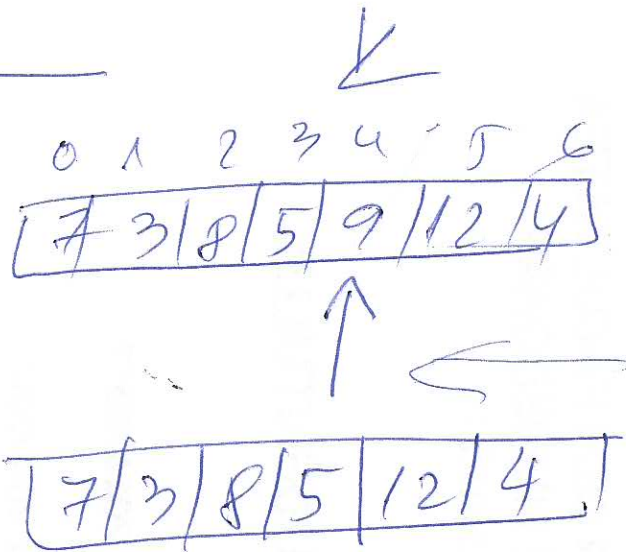 0 1 2 3 4 5 6
7 3 8 5 9 12 4
7 3 8 5 12 4